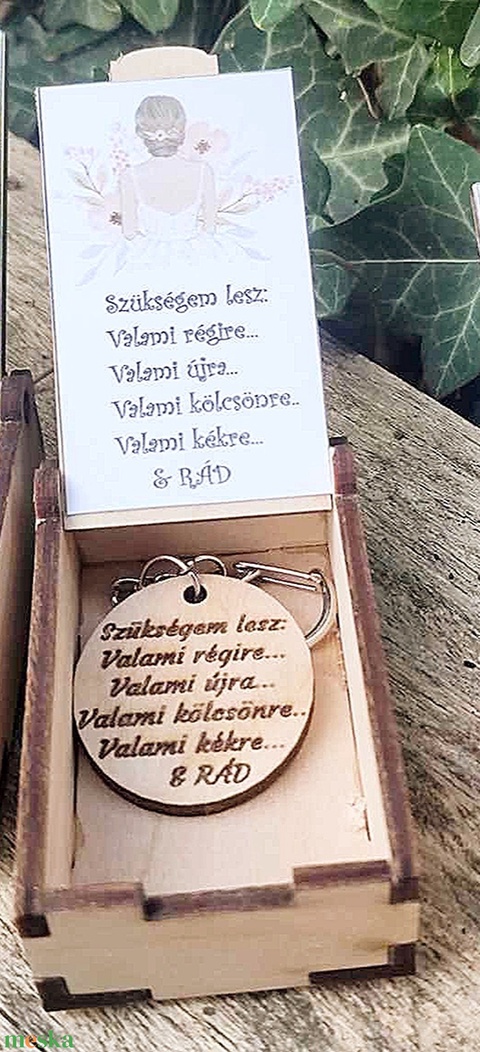 Szükségem lesz:
Valami régire...
Valami újra...
Valami kölcsönre..
Valami kékre...
& RÁD
Szükségem lesz:
Valami régire...
Valami újra...
Valami kölcsönre..
Valami kékre...
& RÁD
meska